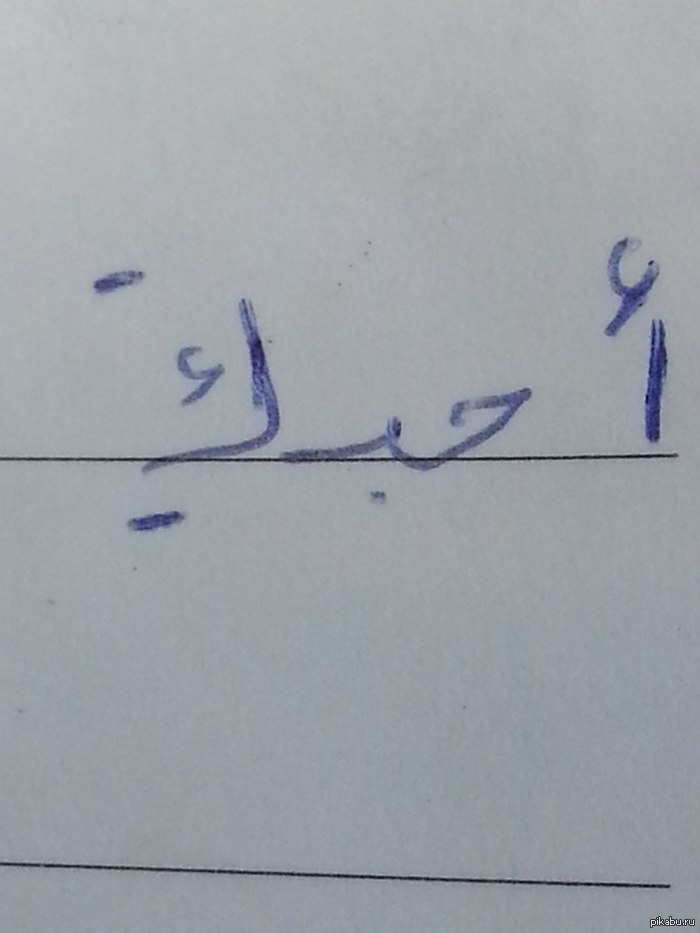 أحبكَِ
pikabu.ru